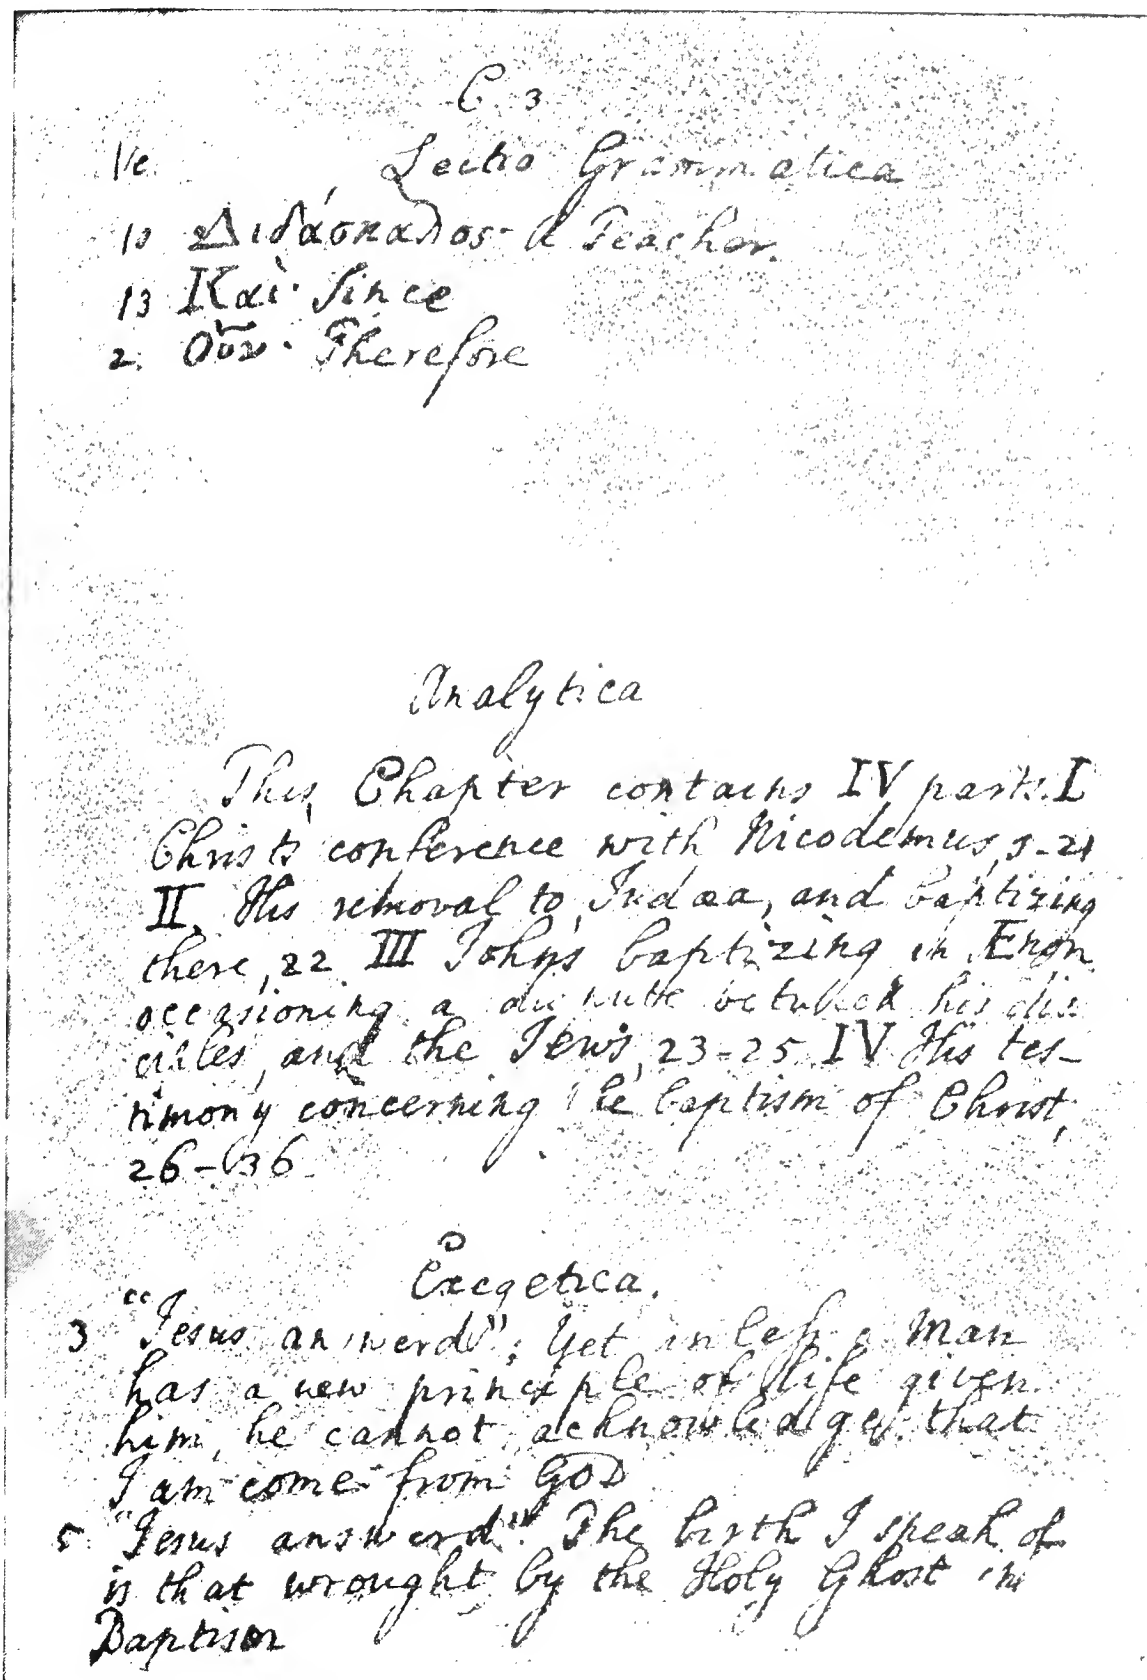 C. 3
Ve. Lectio Grammatica
10 Διδάσκαλος - a Teacher.
13 Καὶ · Since
2. Οὖν · Therefore
Analytica
This Chapter contains IV parts. I
Christs conference with Nicodemus, 1-21
II. His removal to Judæa, and baptizing
there, 22 III John's baptizing in Ænon
occasioning a dispute between his dis
ciples, and the Jews, 23-25 IV His tes-
timony concerning the baptism of Christ,
26-36
Exegetica.
3 "Jesus answerd"; Yet unless a man
has a new principle of life given
him, he cannot acknowledge that
I am come from GOD
5 "Jesus answerd". The birth I speak of
is that wrought by the Holy Ghost in
Baptism